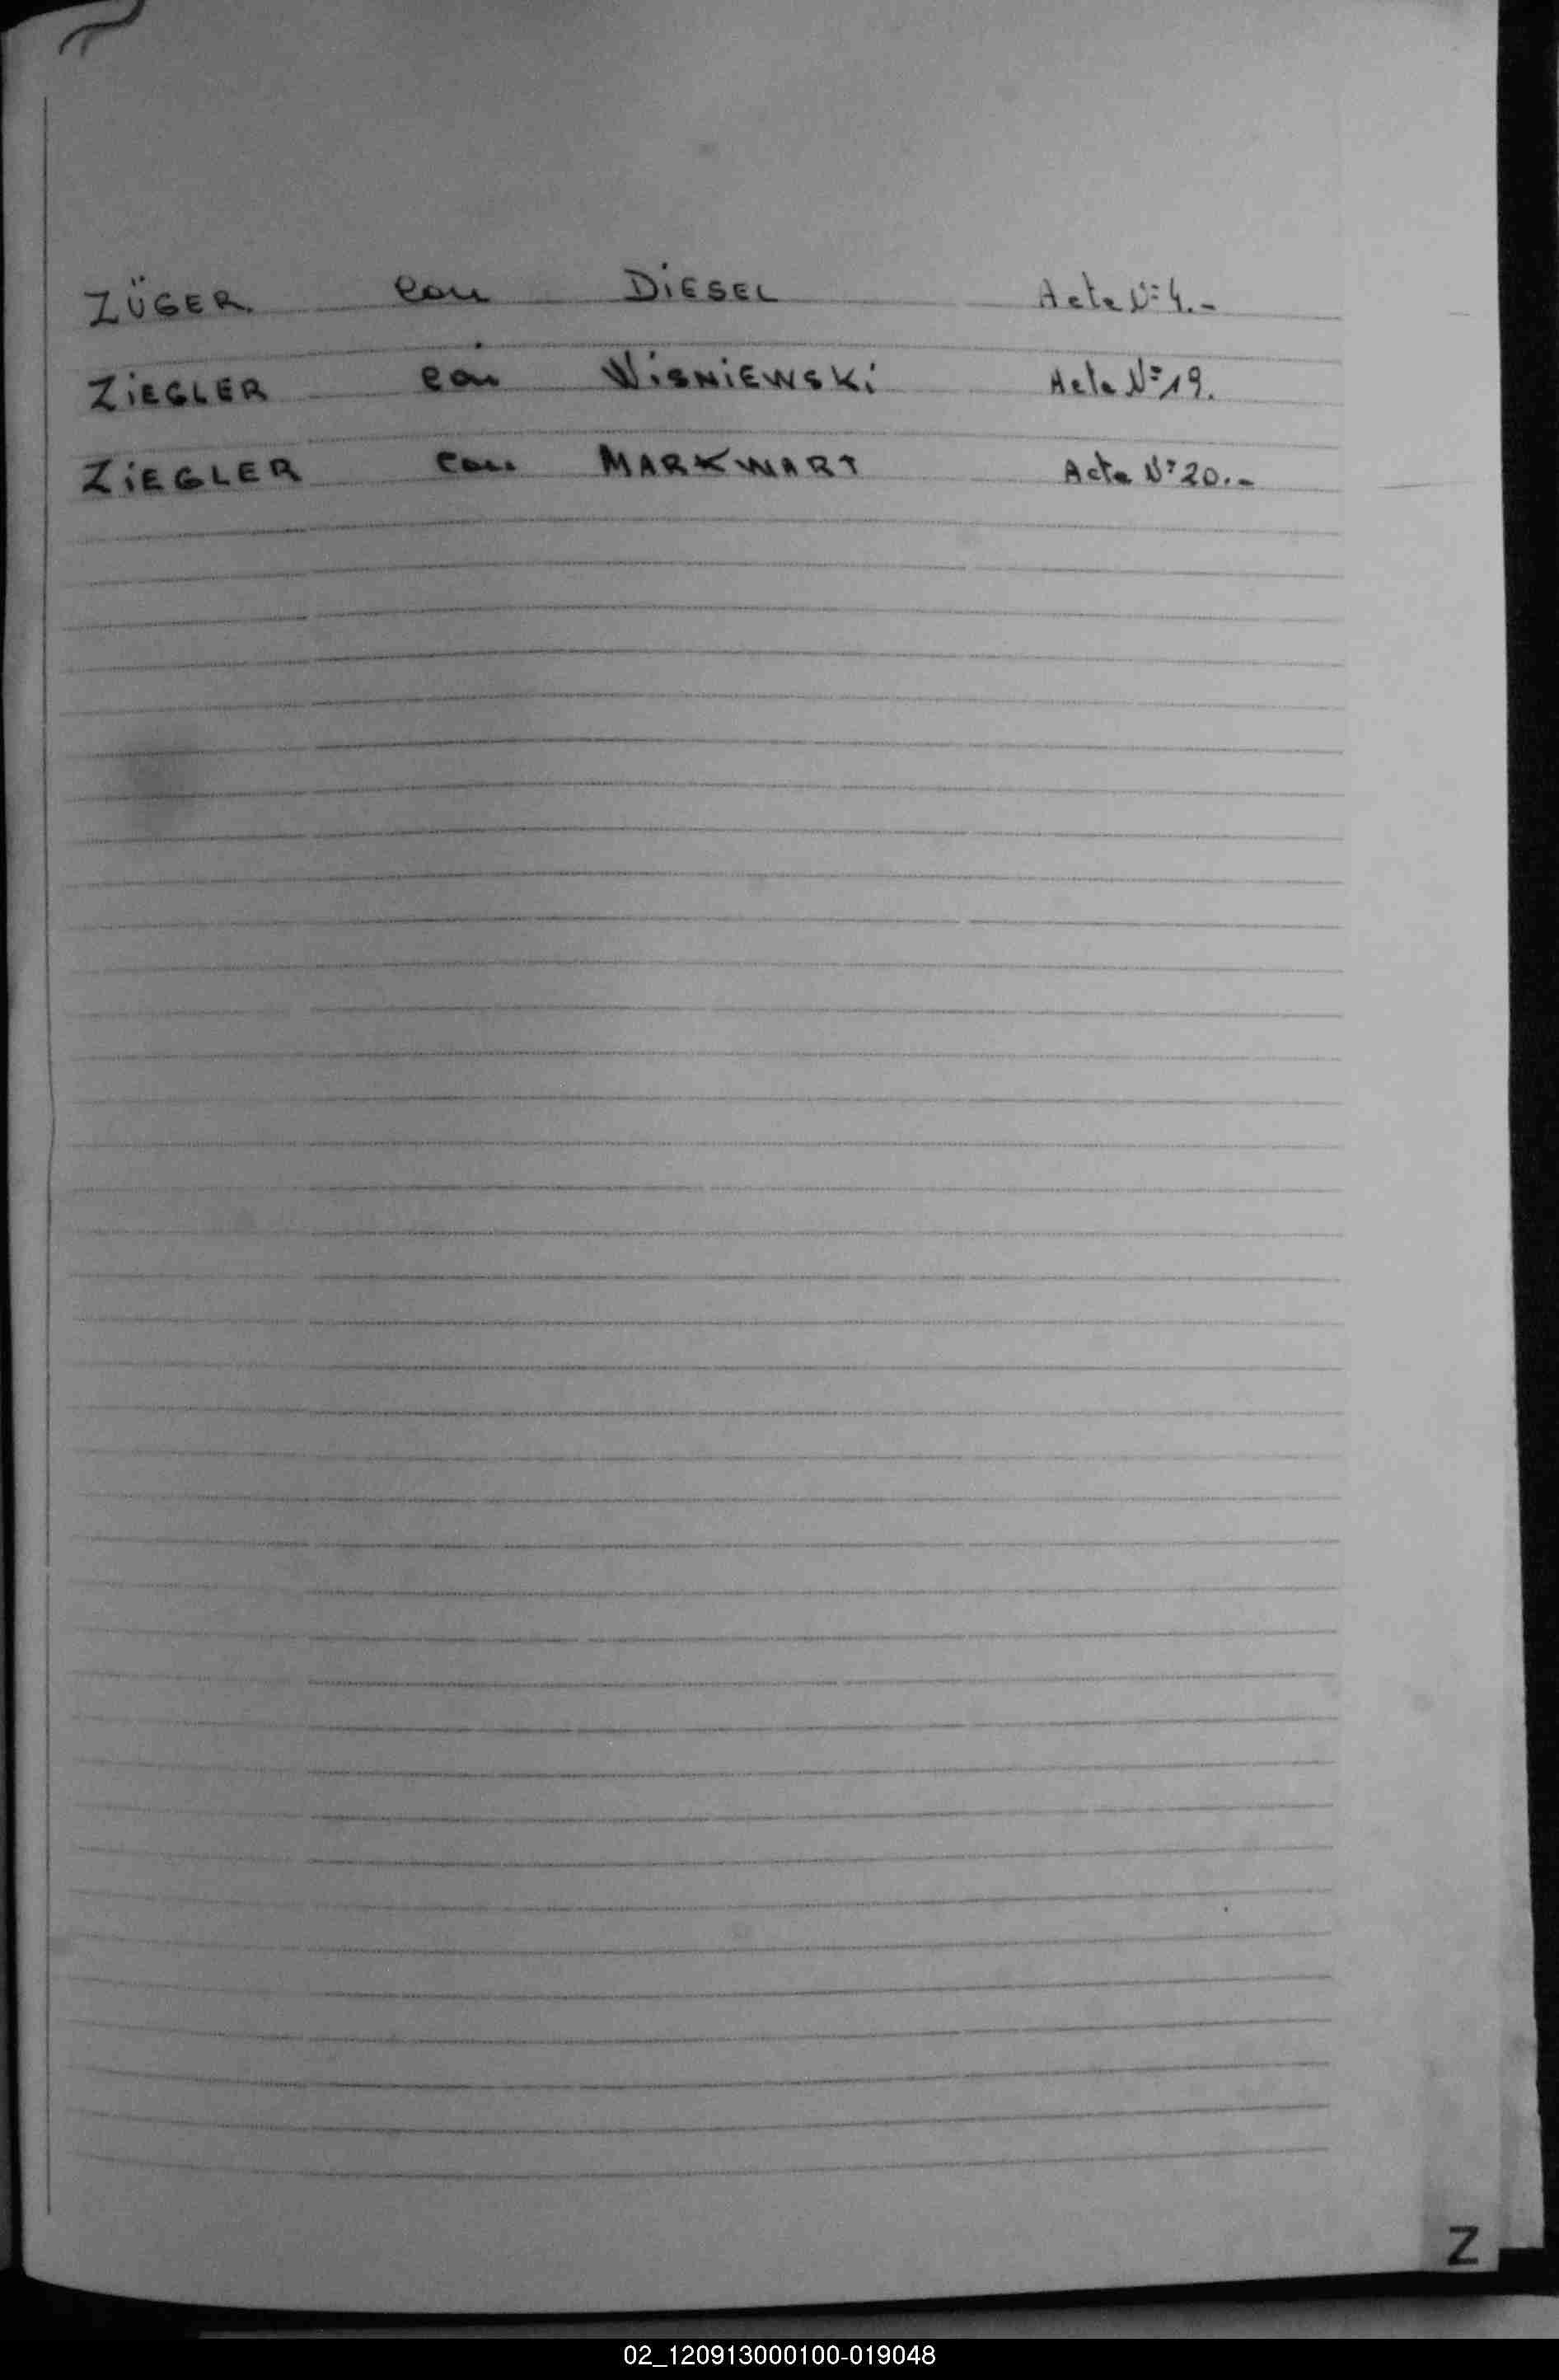 ZÜGER con DiESEL Acta Nº 4.-
ZiEGLER con WiSNiEWSKi Acta Nº 19.
ZiEGLER con MARKWART Acta Nº 20.-
Z
02_120913000100-019048